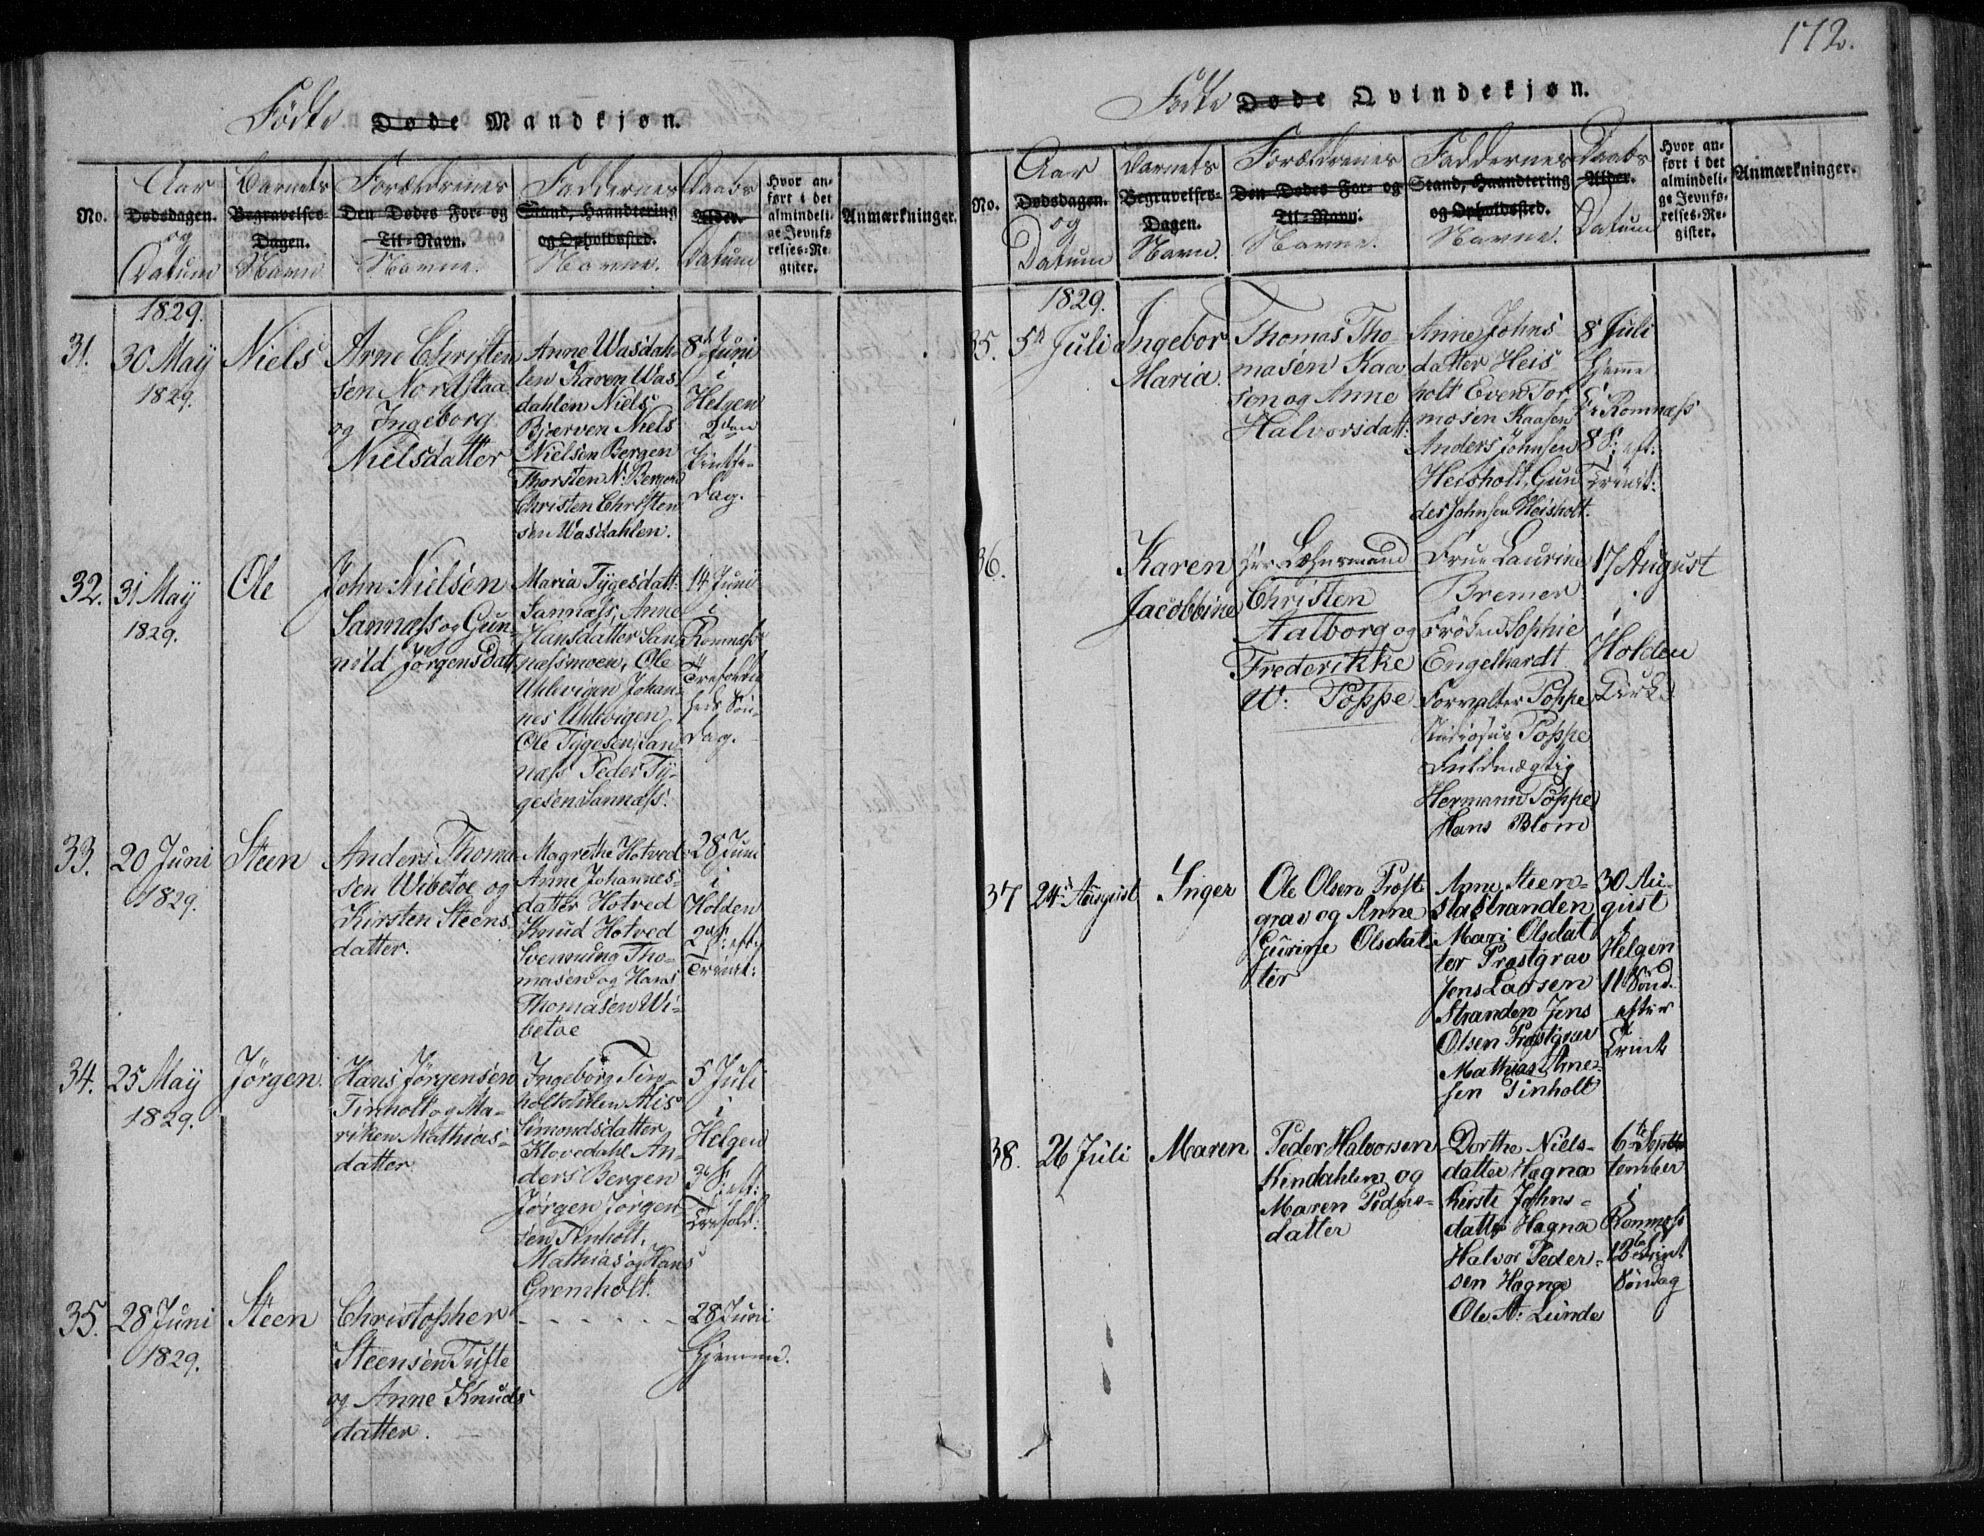 Födte Døde Mandkjøn.
No.
Aar
Dødsdagen.
og
Datum
Barnets
Begravelses-
Dagen.
Navn
Forældrenes
Den Dødes For- og
Til-Navn.
Navne.
Faddernes
Stand, Haandtering
og Opholdssted.
Navne.
Daabs
Alder.
Datum
Hvor an-
ført i det
almindeli-
ge Jevnfø-
relses-Re-
gister.
Anmærkninger.
1829.
31.
30 May
1829.
Niels
Arne Christen
sen Nordstaa
og Ingeborg
Nielsdatter
Anne Wasdah
len Karen Was
dahlen Niels
Bjærven Niels
Nielsen Bergen
Thorsten N. Bergen
Christen Christen
sen Wasdahlen.
8 Juni
i
Helgen
2den
Pintse-
dag.
32.
31 May
1829.
Ole
John Nielsen
Sannæss og Gun-
nild Jörgensdatt.
Maria Tygesdatt:
Sannæss, Anne
Hansdatter San
næssmoen, Ole
Uhlevigen Johan-
nes Uhlevigen
Ole Tygesen San
næss Peder Ty-
gesen Sannæss.
14 Juni
i
Romnæss
Trefoldig
heds Sön-
dag.
33.
20 Juni
1829.
Steen
Anders Thoma
sen Wibetoe og
Kirsten Steens
datter.
Magrethe Hotved
Anne Johannes-
datter Hotved
Knud Hotved
Svennung Tho-
masen og Hans
Thomasen Wi-
betoe
28 Juni
i
Holden
2 S: eft:
Trinit:
34.
25 May
1829.
Jörgen
Hans Jörgensen
Tinholt og Ma-
riken Mathias-
datter
Ingeborg Tin-
holt Alis
Simondsdatter
Klovedahl An-
ders Bergen
Jörgen Jörgen
sen Tinholt,
Mathias og Hans
Gremholt.
5 Juli
i
Helgen
3 S: eft:
Trefold:
35.
28 Juni
1829.
Steen
Christopher
Steensen Tufte
og Anne Knuds
datter.
- - - - - -
28 Juni
Hjemme.
172.
Födte Døde Qvindekjøn.
No.
Aar
Dødsdagen.
og
Datum
Barnets
Begravelses-
Dagen.
Navn.
Forældrenes
Den Dødes For- og
Til-Navn.
Navne.
Faddernes
Stand, Haandtering
og Opholdssted.
Navne.
Daabs
Alder.
Datum
Hvor an-
ført i det
almindeli-
ge Jevnfø-
relses-Re-
gister.
Anmærkninger.
1829.
35.
5 Juli
Ingebor
Maria.
Thomas Tho-
masen Kaa
sen og Anne
Halvorsdatt:
Anne Johns
datter Heis
holt Even Tor
mosen Kaasen
Anders Johnsen
Heisholt, Gun
der Johnsen Heisholt.
8 Juli
Hjeme
Romnæss
8 S: eft:
Trinit:
36.
Karen
Jacobbine
Hr Lehnsmand
Christen
Aalborg og
Frederikke
W: Poppe
Frue Laurine
Bremer
Fröken Sophie
Engelhardt
Forvalter Poppe
Studiosus Poppe
Fuldmægtig
Hermann Poppe
Hans Blom
17 August
i
Holden
Kirke
37
24 August
Inger
Ole Olsen Prost
grav og Anne
Gurine Olsdat-
ter
Anne Steen-
sla Stranden
Mari Olsdat
ter Prostgrav
Jens Larsen
Stranden Jens
Olsen Prostgrav
Mathias Arne-
sen Tinholt
30 Au-
gust
i
Helgen
11 Sönd.
efter
Trint
38.
26 Juli
Maren
Peder Halvorsen
Kindahlen og
Maren Peders-
datter
Dorthe Niels-
datter Hagna
Kirsti Johns-
datter Hagna
Halvor Peder-
sen Hagna
Ole A: Lunde
6 Sep-
tember
i
Romnæss
12 Trint
Söndag